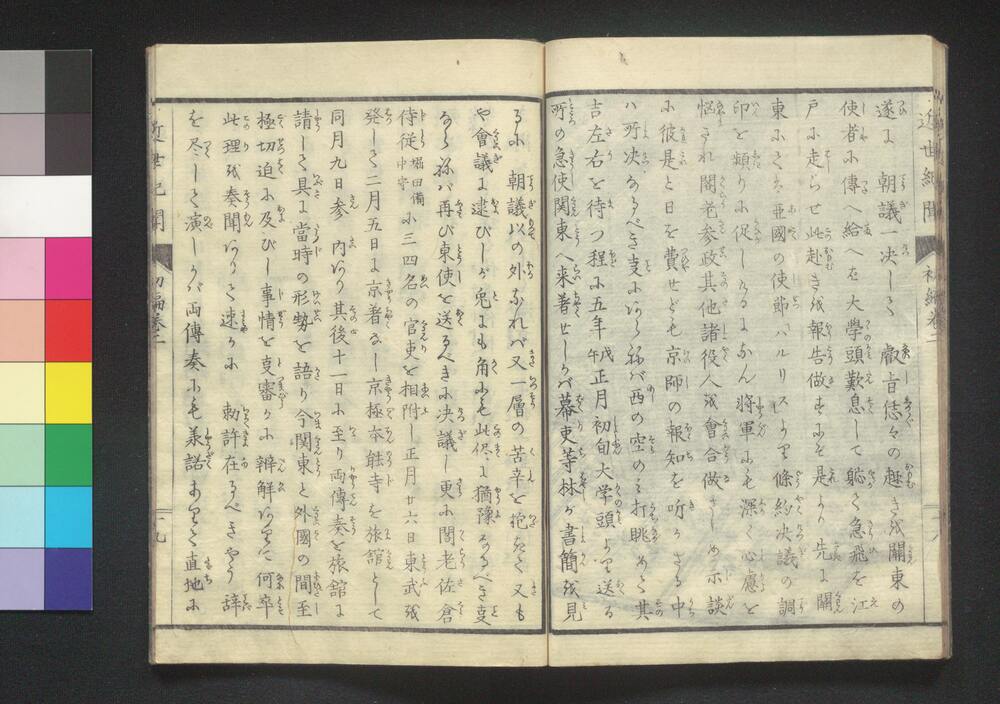 遂に朝議一决して叡旨志々の趣きを関東の
使者に傳へ給へを大學頭歎息して躰く急飛を江
戸に走らせ此赴きを報告做すにぞ是より先に関
東にては亜國の使節ハルリスより條約決議の調
印を頻りに促しけるになん將軍にも深く心慮を
悩され閣老参政其他諸役人を會合做さしめ示談
に彼是と日を費せども京師の報知を聴かざる中
ハ所决なるべき支にあらねバ西の空のミ打眺めて其
吉左右を待つ程に五年戊午正月初旬大学頭より送る
所の急使関東へ来着せしかバ幕吏等林が書簡を見
るに朝議以の外なれバ又一層の苦辛を抱きて又も
や會議に逮びしが兎にも角にも此侭に猶豫なるべき支
ならねバ再び東使を送るべきに决議し更に閣老佐倉
侍従堀田備中守に三四名の官吏を相附し正月廿六日東武を
發して二月五日に京着なし京極本能寺を旅舘として
同月九日参内あり其後十一日に至り両傳奏を旅舘に
請して具に當時の形勢を語り今関東と外國の間至
極切迫に及びし事情を支審かに辯解ありに何卒
此理を奏聞ありて速かに勅許在るべきやう辞
を尽して演しかバ両傳奏にも兼諾ありて直地に
近世紀聞
初編巻二
近世紀聞
初編巻二
十九